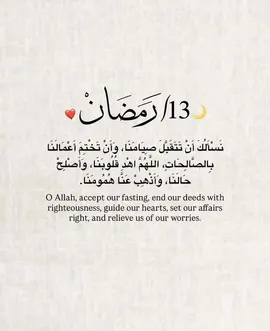 13/ رَمَضَانْ
نَسْأَلُكَ أَنْ تَتَقَبَّلَ صِيَامَنَا، وَأَنْ تَخْتِمَ أَعْمَالَنَا
بِالصَّالِحَاتِ، اللَّهُمَّ اهْدِ قُلُوبَنَا، وَأَصْلِحْ
حَالَنَا، وَأَذْهِبْ عَنَّا هُمُومَنَا.
O Allah, accept our fasting, end our deeds with
righteousness, guide our hearts, set our affairs
right, and relieve us of our worries.